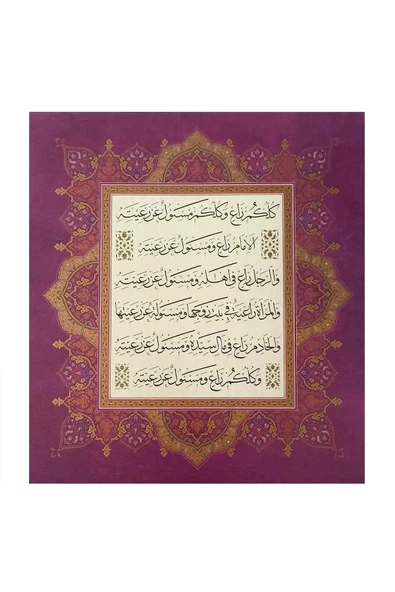 كلكم راع وكلكم مسئول عن رعيته
الإمام راع ومسئول عن رعيته
والرجل راع في أهله ومسئول عن رعيته
والمرأة راعية في بيت زوجها ومسئولة عن رعيتها
والخادم راع في مال سيده ومسئول عن رعيته
وكلكم راع ومسئول عن رعيته